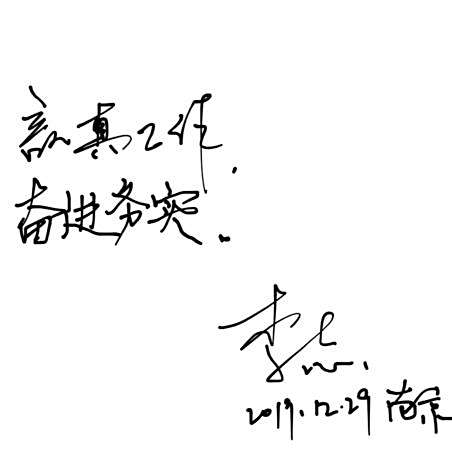 認真工作，
奋进务实。
李志.
2019.12.29 南京